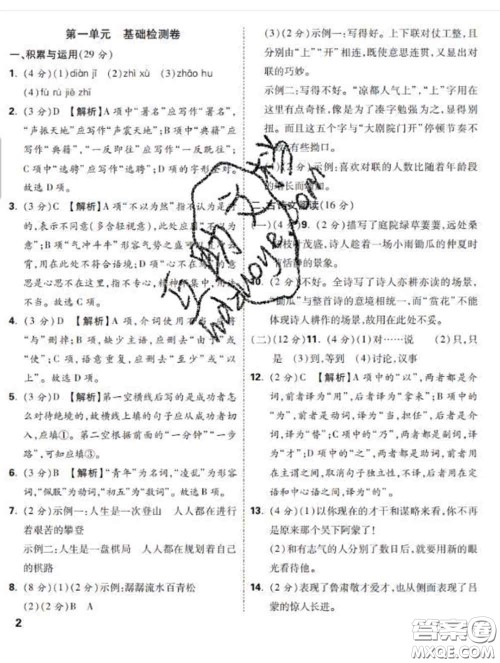 第一单元 基础检测卷
一、积累与运用(29分)
1. (4分)(1)diàn jī (2)zhì xù (3)zhāo hu
(4)fú rú jiě tè
2. (3分)D 【解析】A项中“著名”应写作“著名”,
“声振天地”应写作“声震天地”;B项中“典籍”应
写作“典籍”,“一反即往”应写作“一反既往”;
C项中“选骋”应写作“选聘”;D项的字形全对。
故选D项。
3. (3分)D 【解析】A项“不以为然”指不认为是
的,表示不同意(多含轻视意),此处应为“不以
为意”;B项“气冲斗牛”形容气势之盛可以直冲云
霄,用在此处不符合语境;C项“心不在焉”的意
思是心思不在这里,指不专心,
用在此处不正确。故选D项。
4. (3分)D 【解析】A项,介词使用不当,
“与”删掉;B项,缺少主语,应删去“由于”或
“使”;C项,语意重复,应删去“至少”或“以
上”。故选D项。
5. (3分)B 【解析】第一空横线后写的是成功者怎
么对待绝境的,故横线上填的句子应从成功者切
入,应填①。第二空根据前面的“一分钟”“一步
路”,可知应填④。故选B项。
6. (3分)B 【解析】“青年”为名词,“凌乱”为形容
词,“佩服”为动词,“初五”为“数词”。故选B项。
7. (2分)示例一:人生是一次登山 人人都在进行
着艰苦的攀登
示例二:人生是一盘棋局 人人都在规划着自己
的棋路
8. (8分)(1)(2分)示例:潺潺流水百青松
(2)(2分)B A
2
(3)(2分)示例一:写得好。上下联对仗工整,且
分别由“上”“开”相连,既使意思连贯,又显出对
联的巧妙。
示例二:写得不好。“凉都人气上”,“上”字用在
这里有点奇怪,像是为了凑字勉强为之,显得别
扭。而且这里六个字与“大剧院门开”停顿节奏不
一,有些拗口。
(4)(2分)示例:喜欢对联的人数比随着年龄段
的增长而增加。
二、古诗文阅读(16分)
(一)(4分)9. (2分)描写了庭院绿草萋萋,远处桑
枝叶茂盛,诗人趁着一场小雨锄瓜的仲夏时
节有活力的景象。
10. (2分)不好。全诗写了诗人亦耕亦读的场景,
“锄瓜”与整首诗的意境相统一,而“赏花”不能
体现诗人耕作的场景,故用在此处不妥。
(二)(12分)11. (4分)(1)对……说 (2)只,只
是 (3)到,等到 (4)讨论,议事
12. (2分)C 【解析】A项中的“以”,两者都是介
词,前者译为“用”,后者译为“拿来”;B项中的
“为”,前者是动词,译为“当,担任”,后者是介
词,译为“给”;C项中的“乃”,两者都是副词,译
为“才”;D项中的“之”,两者都是助词,前者用
在主谓之间,取消句子独立性,不译,后者用在定
语和中心语之间,译为“的”。故选C项。
13. (4分)(1)以你现在的才干和谋略来看,你不再
是原来那个吴下阿蒙了!
(2)和有志气的人分别了数日后,就要用新的眼
光看待他。
14. (2分)表现了鲁肃敬才爱才,也从侧面表现了吕
蒙的惊人长进。
mxqnzuoye.com
答案圈
MXQE.COM